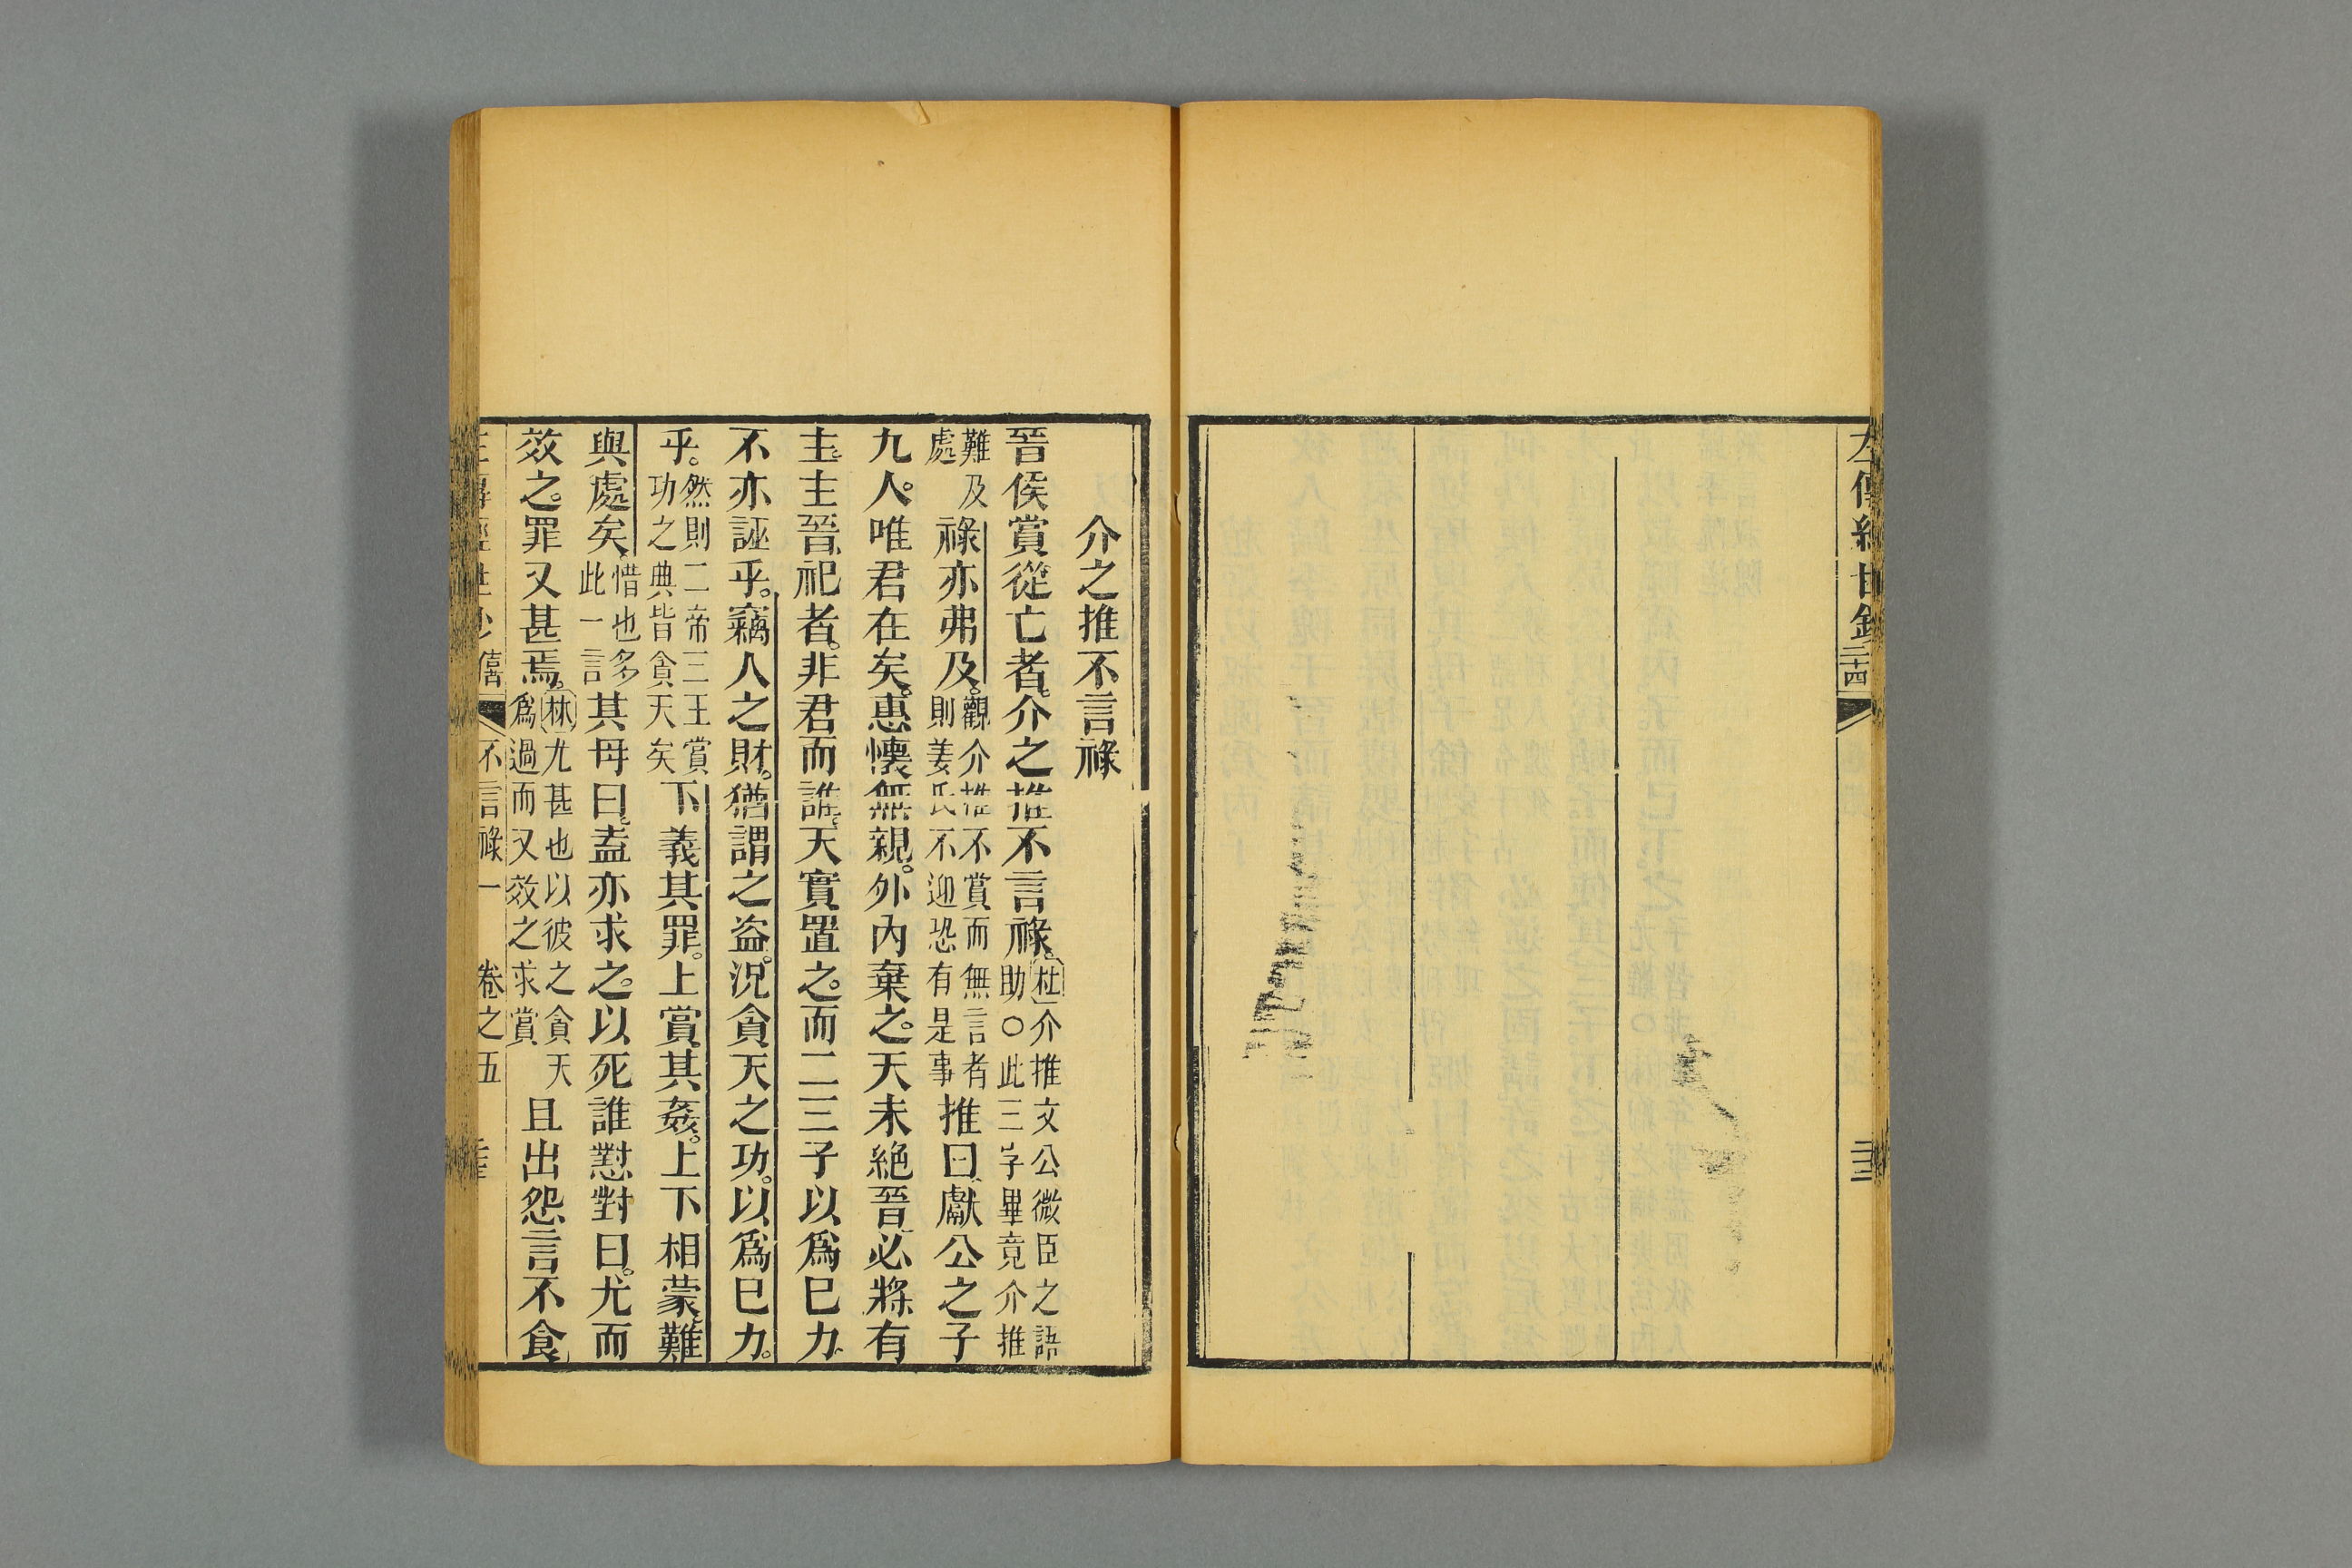 左傳經世鈔 二十四
介之推不言祿
晉侯賞從亡者。介之推不言祿。杜介推文公微臣之語助〇此三字畢竟介推
難及處祿亦弗及。觀介推不賞而無言者則姜氏不迎恐有是事推曰。獻公之子
九人。唯君在矣。惠懷無親。外內棄之。天未絕晉。必將有
主。主晉祀者。非君而誰。天實置之。而二三子以爲巳力。
不亦誣乎。竊人之財。猶謂之盜。況貪天之功。以爲巳力。
乎。然則二帝三王賞功之典皆貪天矣下義其罪。上賞其姦。上下相蒙。難
與處矣。惜也多此一言其母曰。盍亦求之。以死誰懟。對曰。尤而
效之。罪又甚焉。林尤甚也以彼之貪天爲過而又效之求賞且出怨言。不食
左傳經世鈔 僖 不言祿一 卷之五